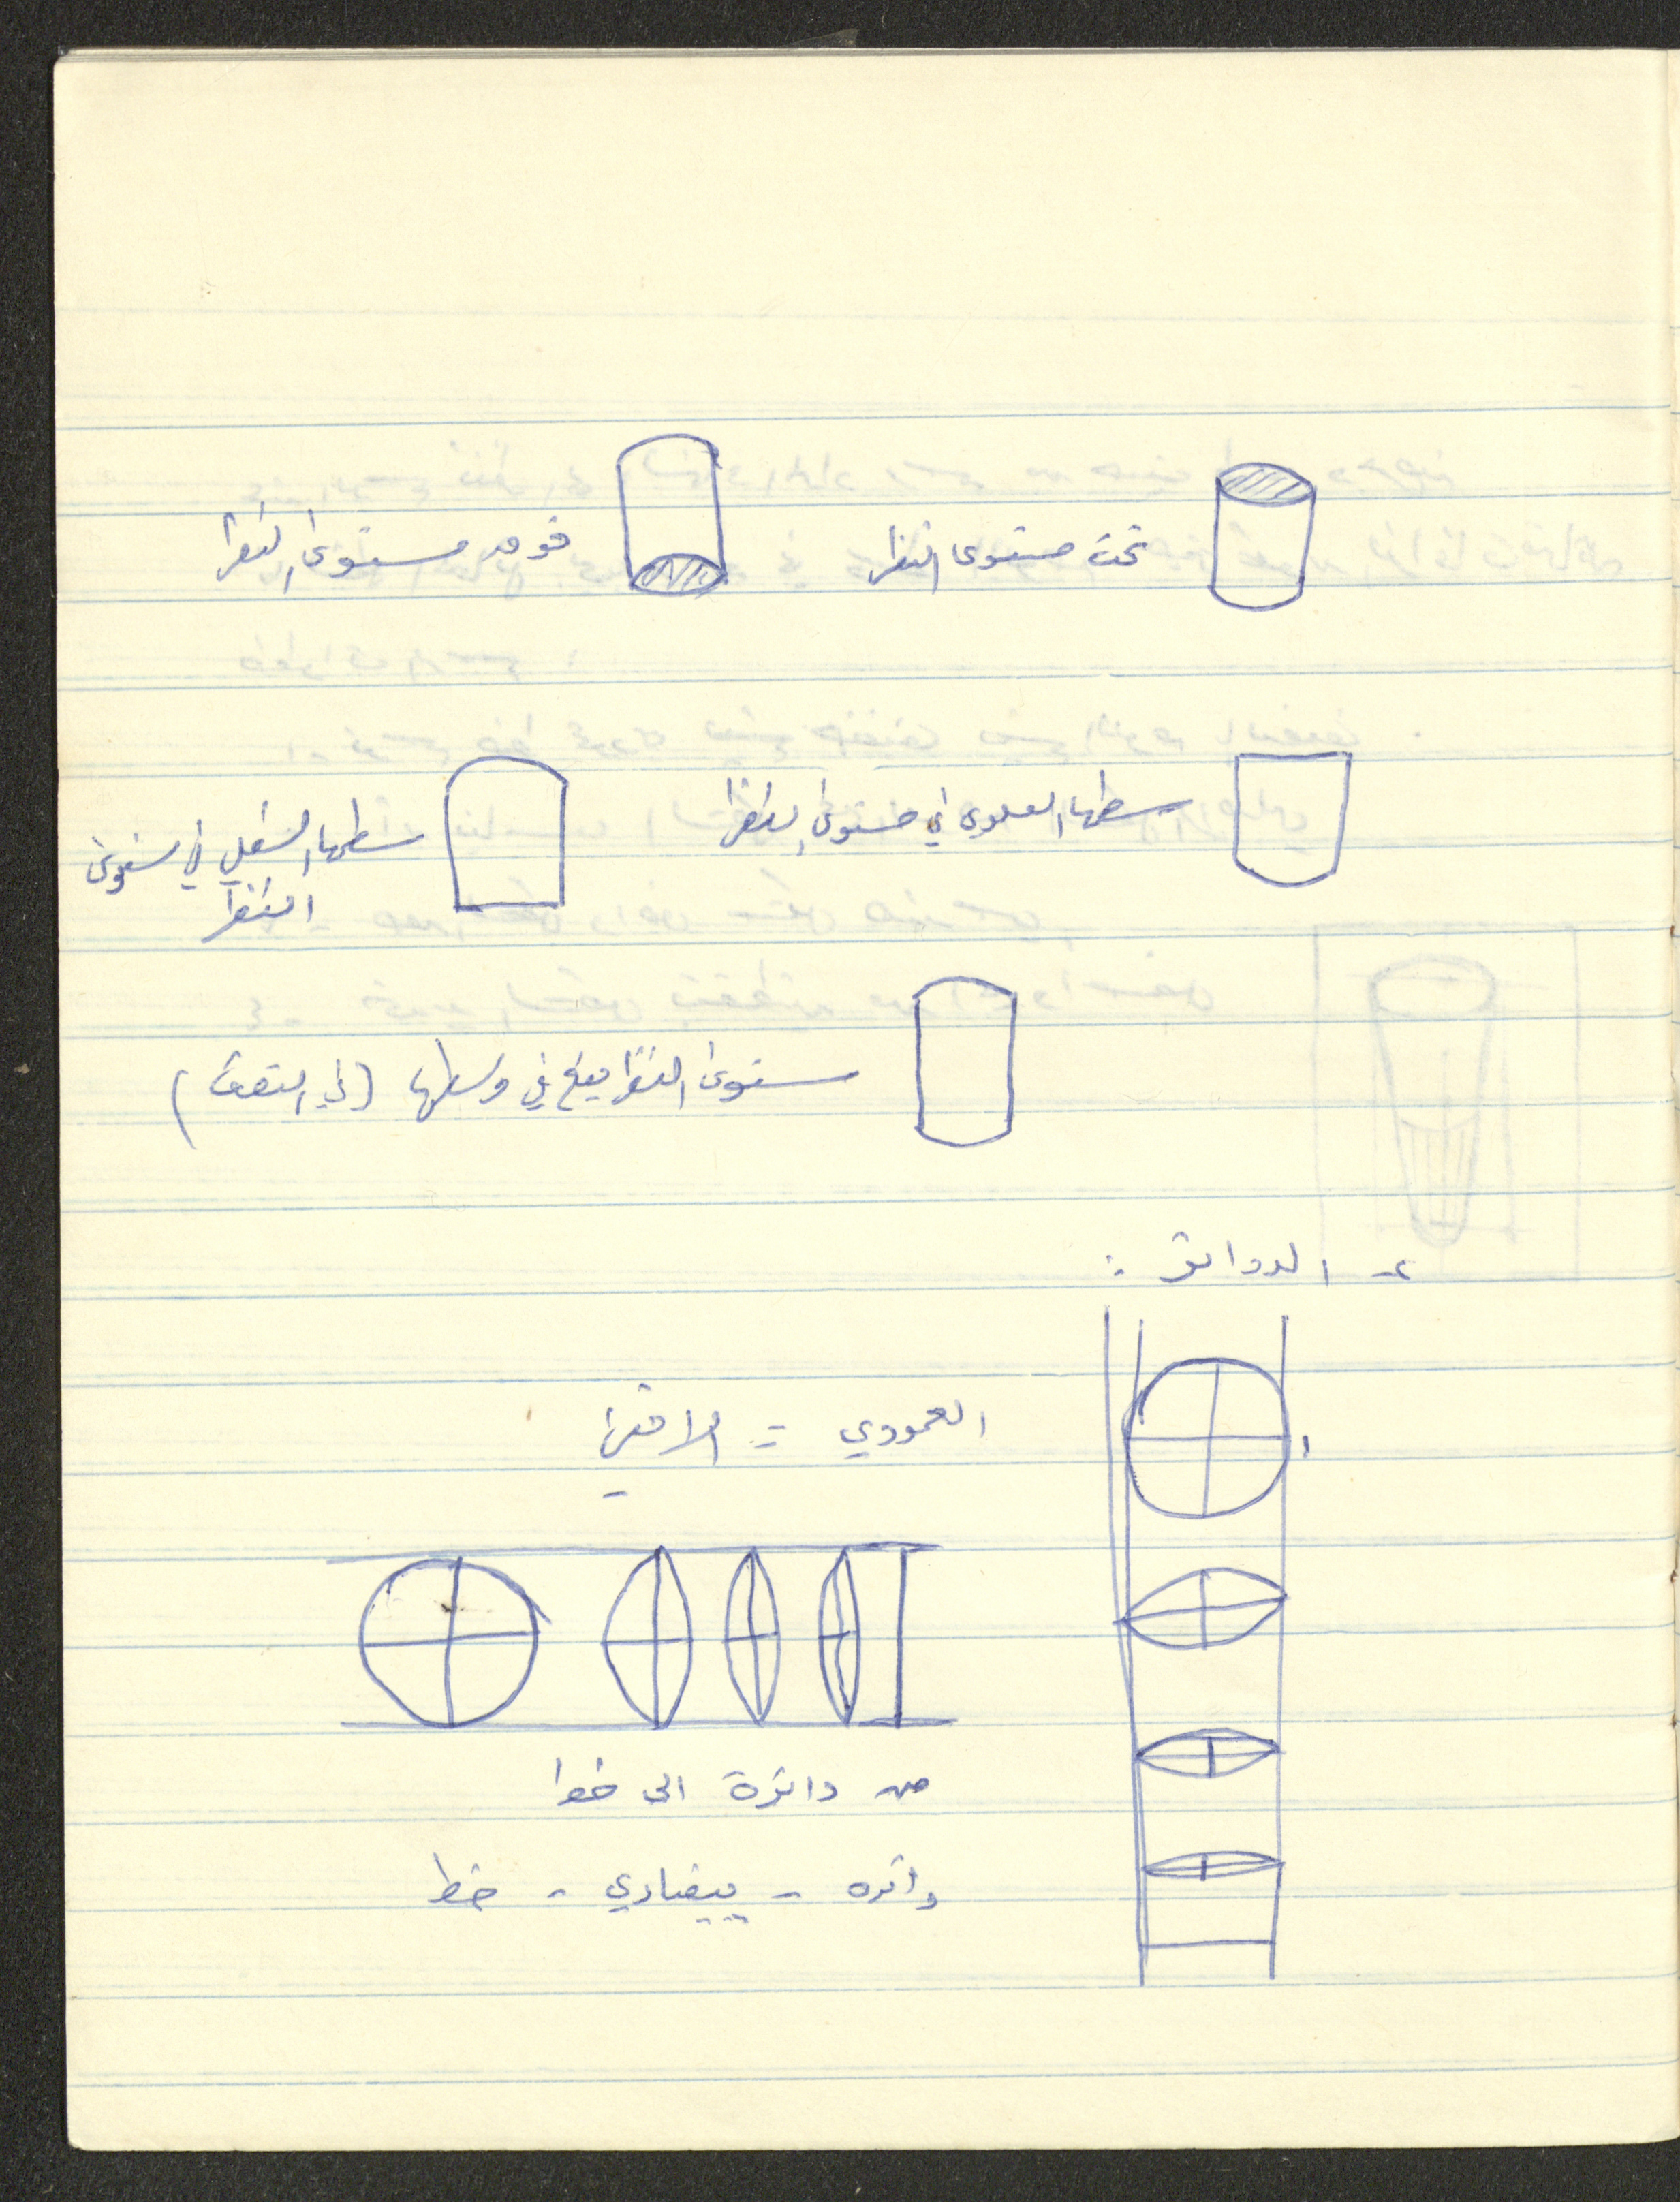 تحت مستوى النظر
فوق مستوى النظر
سطحها العلوي في مستوى النظر
سطحها السفلي في مستوى
النظر
مستوى النظر يقع في وسطها (في النصف)
٢- الدوائر :
١
العمودي = الافقي
من دائرة الى خط
دائره - بيضاوي - خط